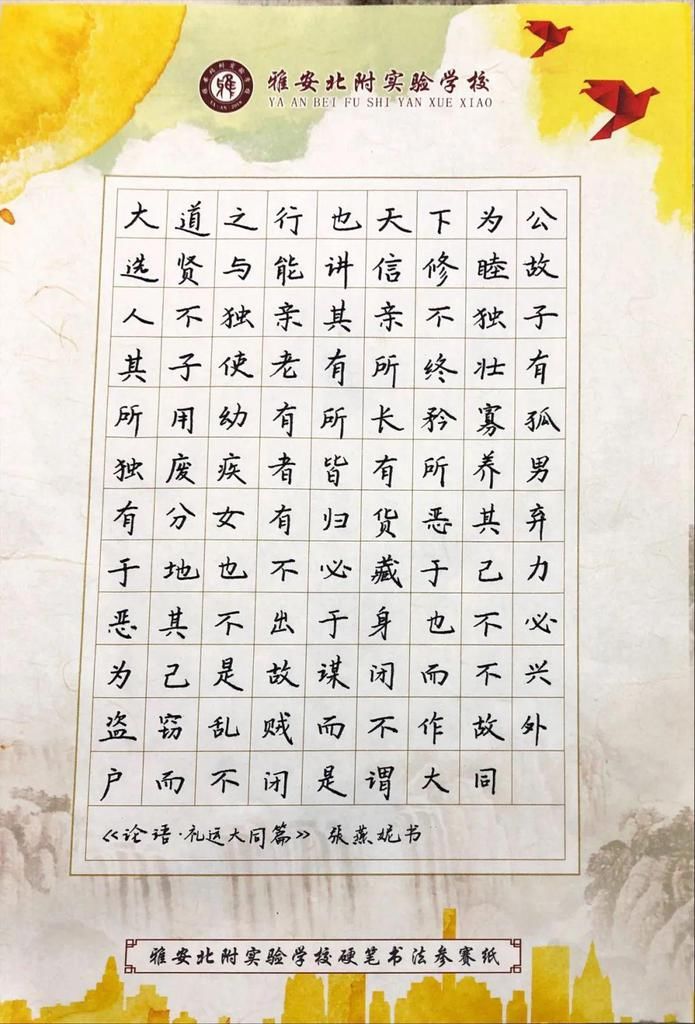 雅安北附实验学校
YA AN BEI FU SHI YAN XUE XIAO
雅
YA AN · 2019
大道之行也天下为公
选贤与能讲信修睦故
人不独亲其亲不独子
其子使老有所终壮有
所用幼有所长矜寡孤
独废疾者皆有所养男
有分女有归货恶其弃
于地也不必藏于己力
恶其不出于身也不必
为己是故谋闭而不兴
盗窃乱贼而不作故外
户而不闭是谓大同
《论语·礼运大同篇》 张燕妮书
雅安北附实验学校硬笔书法参赛纸